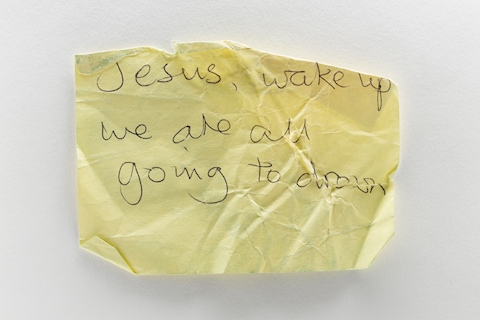 Jesus, wake up
we are all
going to drown